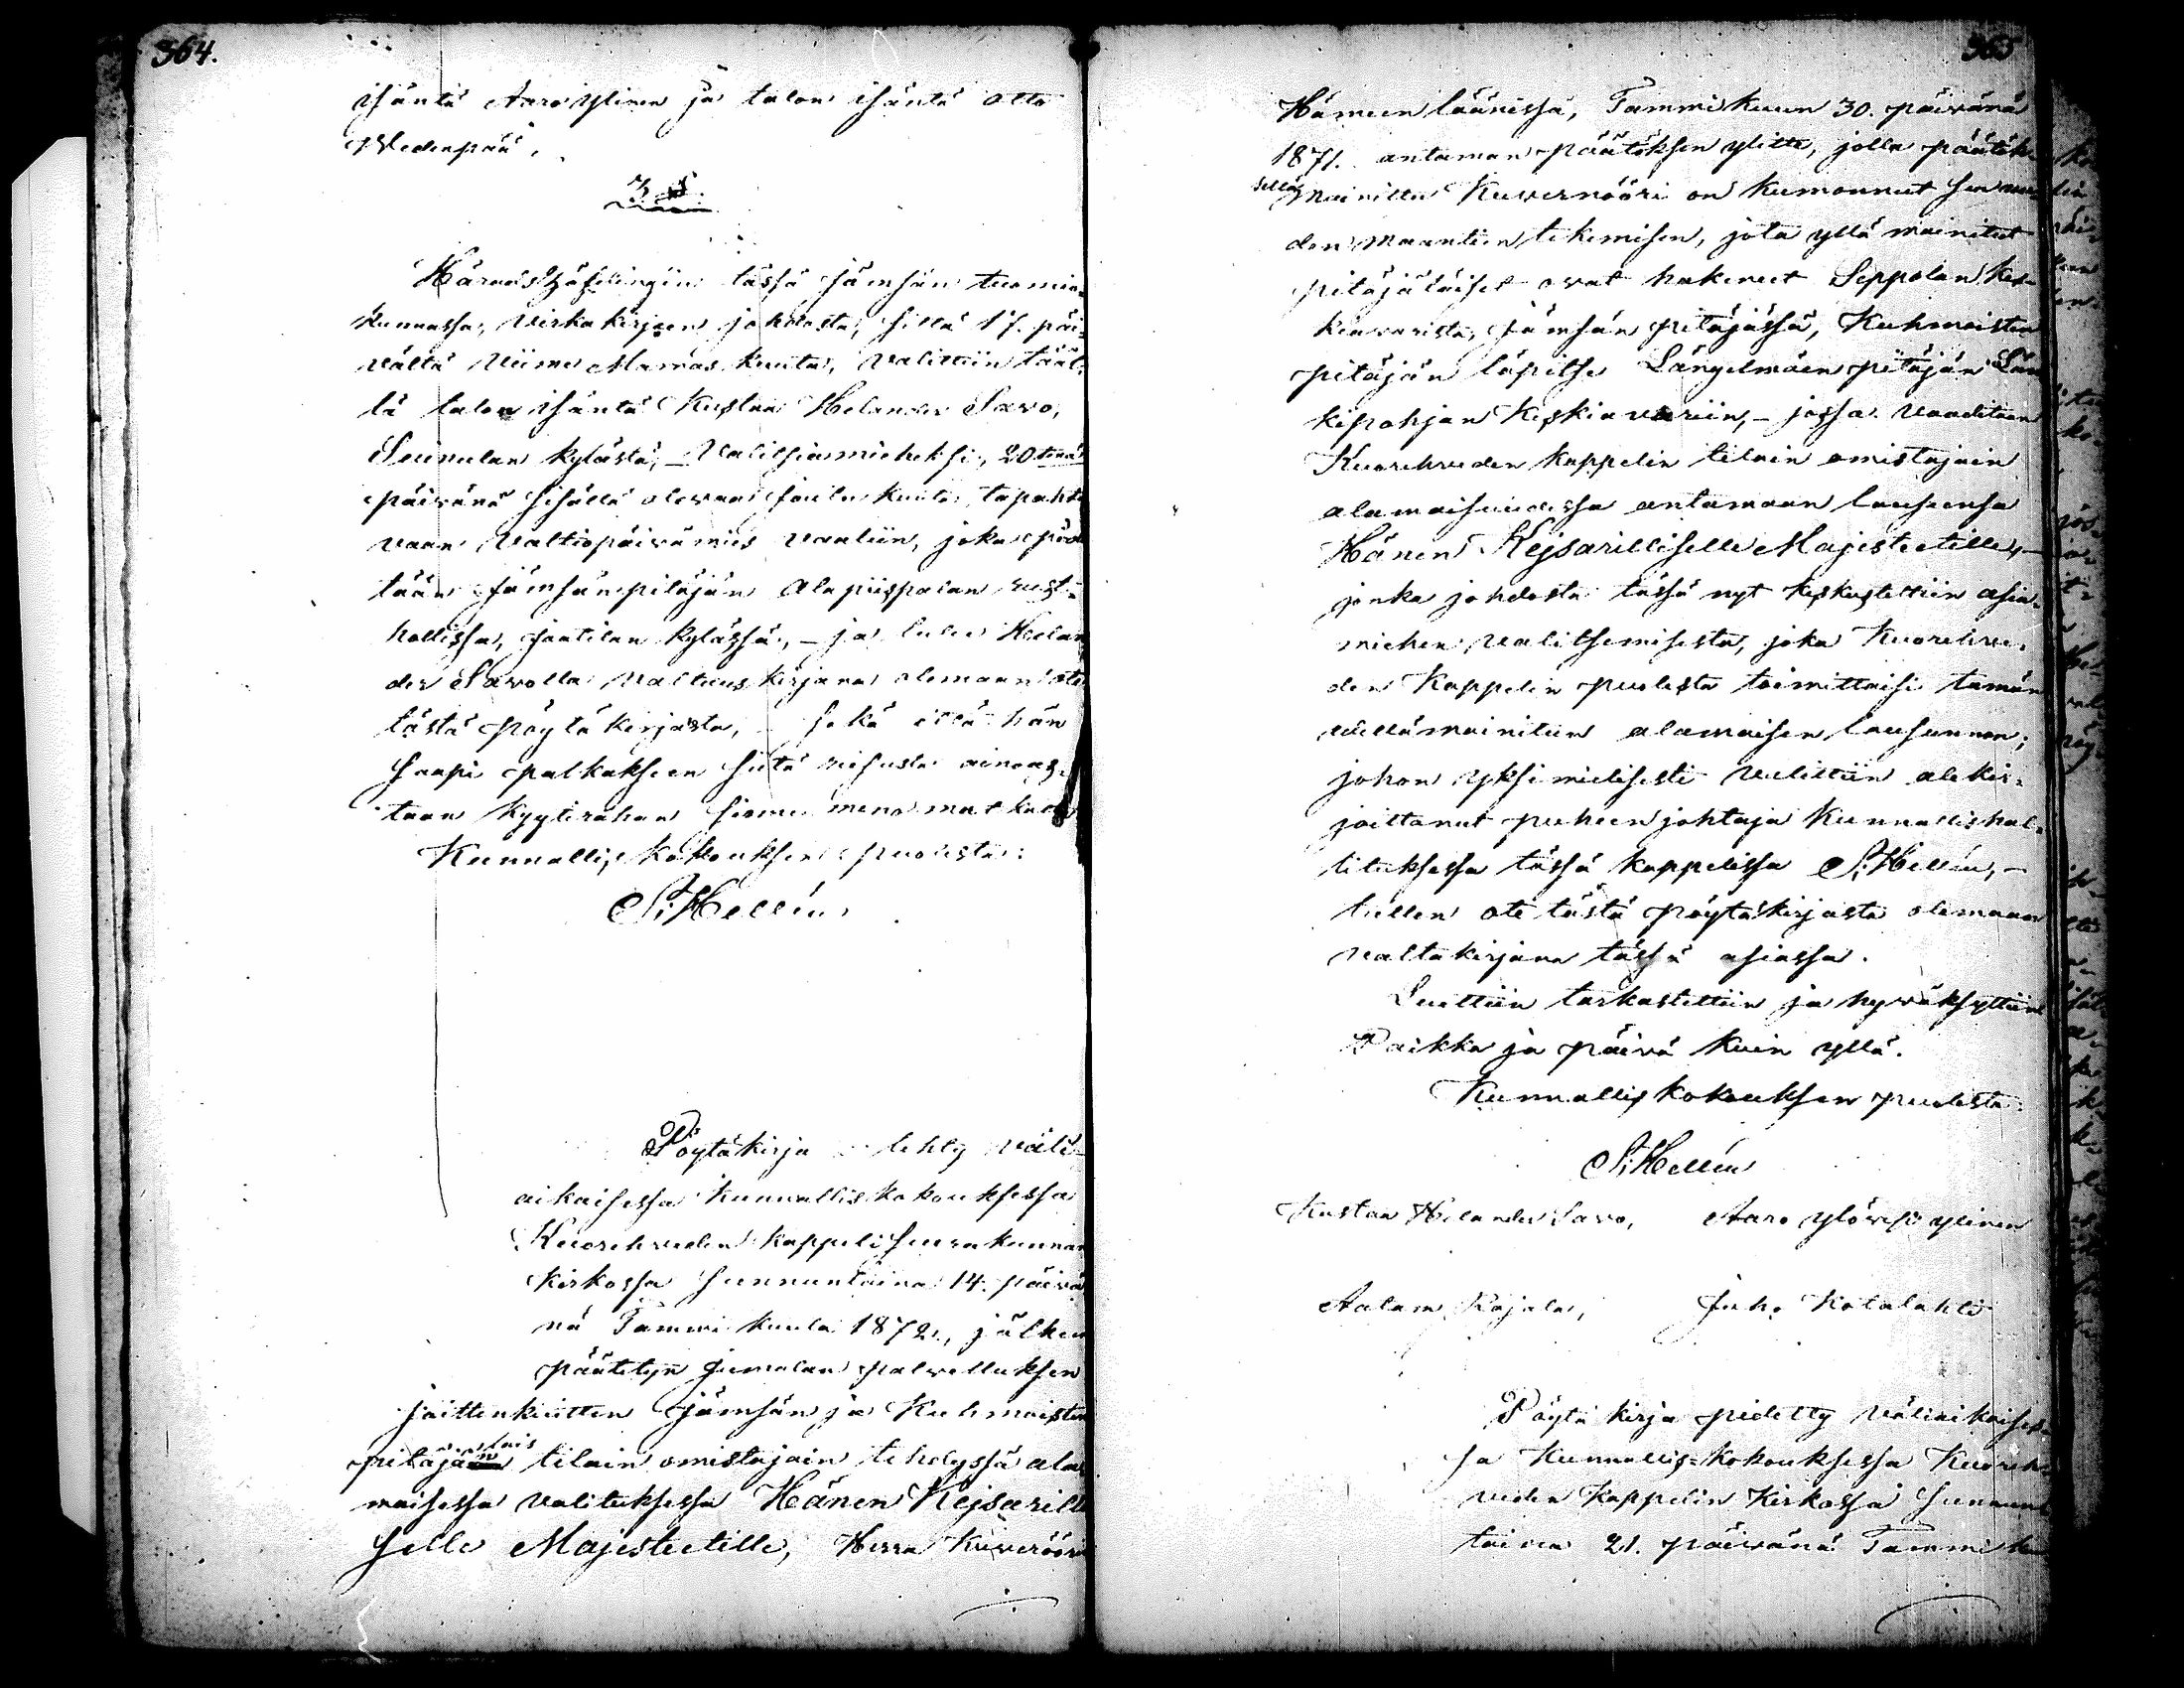 364.
isäntä Aaro Ylinen ja talon isäntä Otto
Vedenpää.
3 §.
Häradshöfdingin tässä Jämsän tuomio-
kunnassa, virka kirjeen johdosta, siltä 17. päi-
vältä viime Marras kuuta, valittiin tääl-
tä talon isäntä Kustaa Helander Savo,
Seunulan kylästä, – Valitsiamieheksi, 20 tenä
päivänä sisällä olevaa Joulu kuuta, tapahtu
vaan Valtiopäivämies vaaliin, joka pide
tään Jämsän pitäjän Alapiispalan rust-
hollissa, Jaatilan kylässä, – ja tulee Helan
der Savolla valtuus kirjana olemaan ote
tästä pöytäkirjasta, – sekä että hän
saapi palkakseen siitä reisusta ainoas-
taan kyytirahan sinne meno matkalta
Kunnallis kokouksen puolesta:
S: Hellén
Pöytäkirja tehty väli-
aikaisessa kunnallis kokouksessa
Kuorehveden kappeli seurakunnan
kirkossa sunnuntaina 14. päivä
nä Tammi kuuta 1872., jälkeen
päätetyn jumalan palvelluksen
joittenkuitten Jämsän ja Kuhmoisten
lais
pitäjän tilain omistajain tehdyssä ala
maisessa valituksessa Hänen Kejsarilli
selle Majesteetille, Herra Kuvernöörin
365
Hämeen läänissä, Tammikuun 30. päivänä
1871. antaman päätöksen ylitte, jolla päätök-
sellä mainittu Kuvernööri on kumonnut sen uu-
den maantien tekemisen, jota yllä mainitut
pitäjäläiset ovat hakeneet Seppolan kes-
kievarista, Jämsän pitäjässä, Kuhmoisten
pitäjän läpitse Längelmäen pitäjän Län
kipohjan Keskievariin, – jossa vaaditaan
Kuorehveden kappelin tilain omistajain
alamaisuudessa antamaan lauseensa
Hänen Kejsarilliselle Majesteetille, –
jonka johdosta tässä nyt keskusteltiin asia-
miehen valitsemisesta, joka Kuorehve-
den Kappelin puolesta toimittaisi tämän
edellämainitun alamaisen lausunnon;
johon yksimielisesti valittiin alekir-
joittanut puheenjohtaja Kunnallishal-
lituksessa tässä kappelissa S: Hellén, –
tullen ote tästä pöytäkirjasta olemaan
valtakirjana tässä asiassa.
Luettiin tarkastettiin ja hyväksyttiin
Paikka ja päivä kuin yllä.
Kunnallis kokouksen puolesta:
S: Hellén
Kustaa Helander Savo, Aaro Ylövesi Ylinen
Aatam Rajala, Juho Kotalahti
Pöytä kirja pidetty väliaikaises-
sa Kunnallis-kokouksessa Kuoreh-
veden Kappelin Kirkossa Sunnun
taina 21. päivänä Tammi kuu